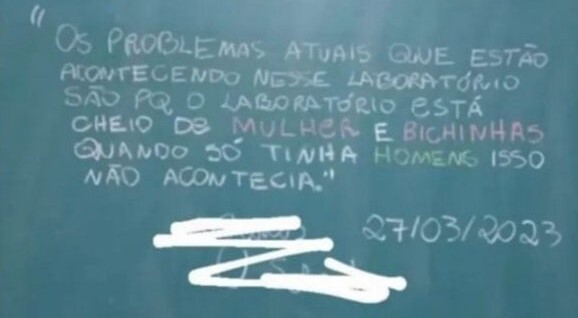 "OS PROBLEMAS ATUAIS QUE ESTÃO
ACONTECENDO NESSE LABORATÓRIO
SÃO PQ O LABORATÓRIO ESTÁ
CHEIO DE MULHER E BICHINHAS
QUANDO SÓ TINHA HOMENS ISSO
NÃO ACONTECIA."
27/03/2023